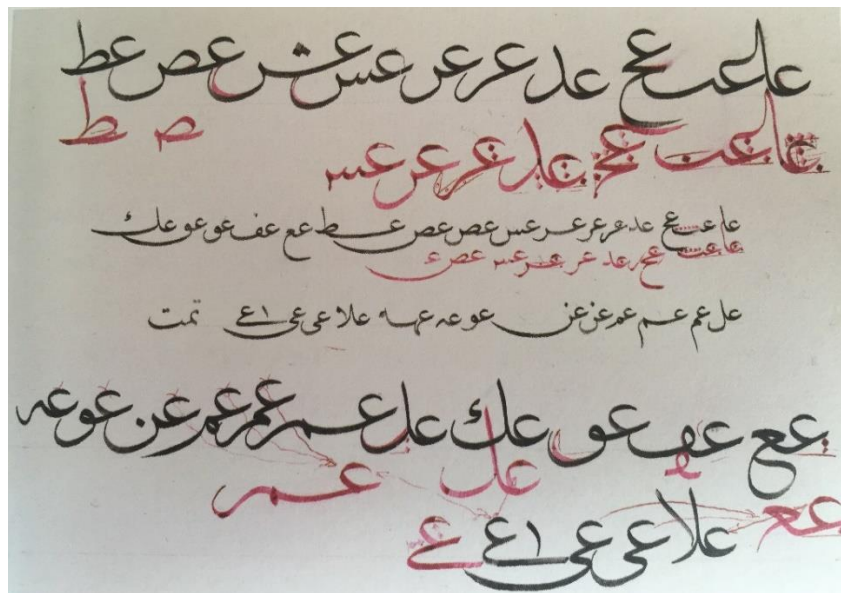 عا عب عج عد عر عر عس عس عص عط
عا عب عج عد عر عر عس ص ط
عا عب عج عد عر عر عس عص عص عط عع عف عو عو عك
عا عب عج عد عر عر عس عص
عل عم عم عم عن عن عو عه علا عى عى عے تمت
عع عف عو عك عل عم عم عم عن عو عه
عل عم
عع علا عى عى عے عے